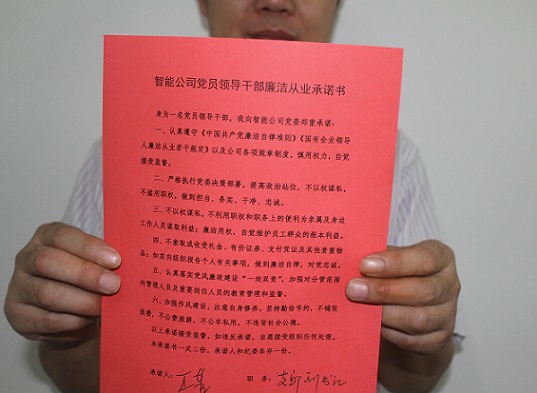 智能公司党员领导干部廉洁从业承诺书
身为一名党员领导干部，我向智能公司党委郑重承诺：
一、认真遵守《中国共产党廉洁自律准则》《国有企业领导
人廉洁从业若干规定》以及公司各项规章制度，慎用权力，自觉
接受监督。
二、严格执行党委决策部署，提高政治站位，不以权谋私，
不滥用职权，做到担当、务实、干净、忠诚。
三、不以权谋私，不利用职权和职务上的便利为亲属及身边
工作人员谋取利益；廉洁用权，自觉维护员工群众的根本利益。
四、不索取或收受礼金、有价证券、支付凭证及其他贵重物
品；如实向组织报告个人有关事项，做到廉洁自律，对党忠诚。
五、认真落实党风廉政建设“一岗双责”，加强对分管范围
内管理人员及重要岗位人员的教育管理和监督。
六、加强作风建设，注意自身修养，坚持勤俭节约，不铺张
浪费，不公费旅游，不公车私用，不违背社会公德。
以上承诺接受监督，如违反承诺，自愿接受组织任何处理。
本承诺书一式二份，承诺人和纪委各存一份。
承诺人： 职务：支部副书记